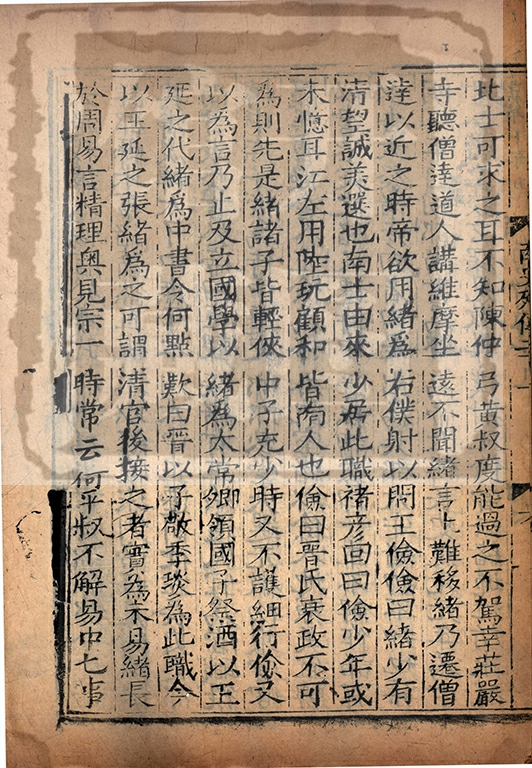 北士可求之耳不知陳仲弓黃叔度能過之不駕幸莊嚴
寺聽僧達道人講維摩坐遠不聞緒言上難移緒乃遷僧
達以近之時帝欲用緒爲右僕射以問王儉儉曰緒少有
清望誠美選也南士由來少居此職褚彥回曰儉少年或
未憶耳江左用陸玩顧和皆南人也儉曰晋氏衰政不可
爲則先是緒諸子皆輕俠中子充少時又不護細行儉又
以為言乃止及立國學以緒為太常卿領國子祭酒以王
延之代緒爲中書令何點歎曰晋以子敬季琰為此職今
以王延之張緒爲之可謂清官後接之者實為未易緒長
於周易言精理奧見宗一時常云何平叔不解易中七事